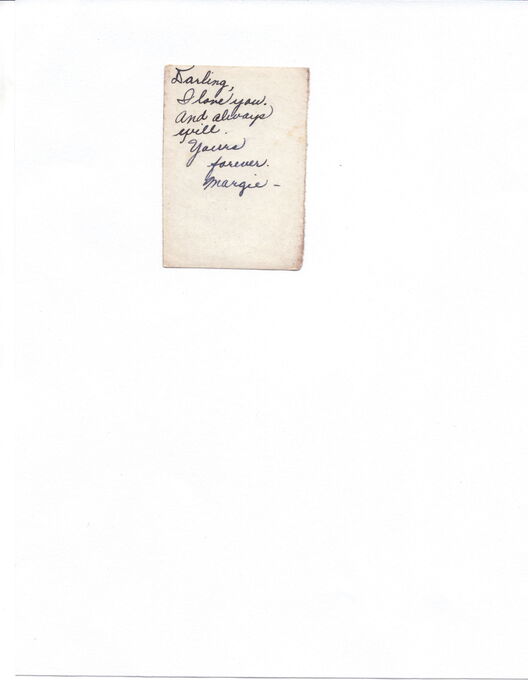 Darling,
I love you.
And always
will.
Yours
forever.
Margie -